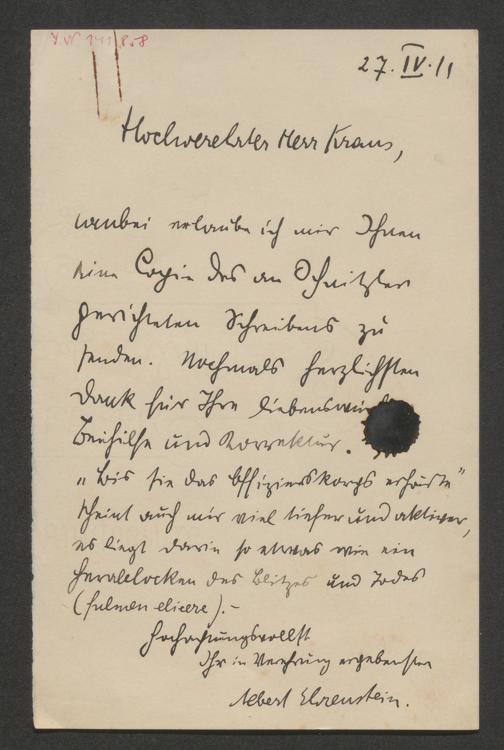 I.N 141.858
27. IV. 11
Hochverehrter Herr Kraus,
anbei erlaube ich mir Ihnen
eine Copie des an Schnitzler
gerichteten Schreibens zu
senden. Nochmals herzlichsten
Dank für Ihre liebenswürd
Beihilfe und Korrektur.
„bis sie das Offizierskorps erhörte"
scheint auch mir viel tiefer und aktiver,
es liegt darin so etwas wie ein
herablocken des Blitzes und Todes
(fulmen elicere). –
Hochachtungsvollst
Ihr in Verehrung ergebenster
Albert Ehrenstein.